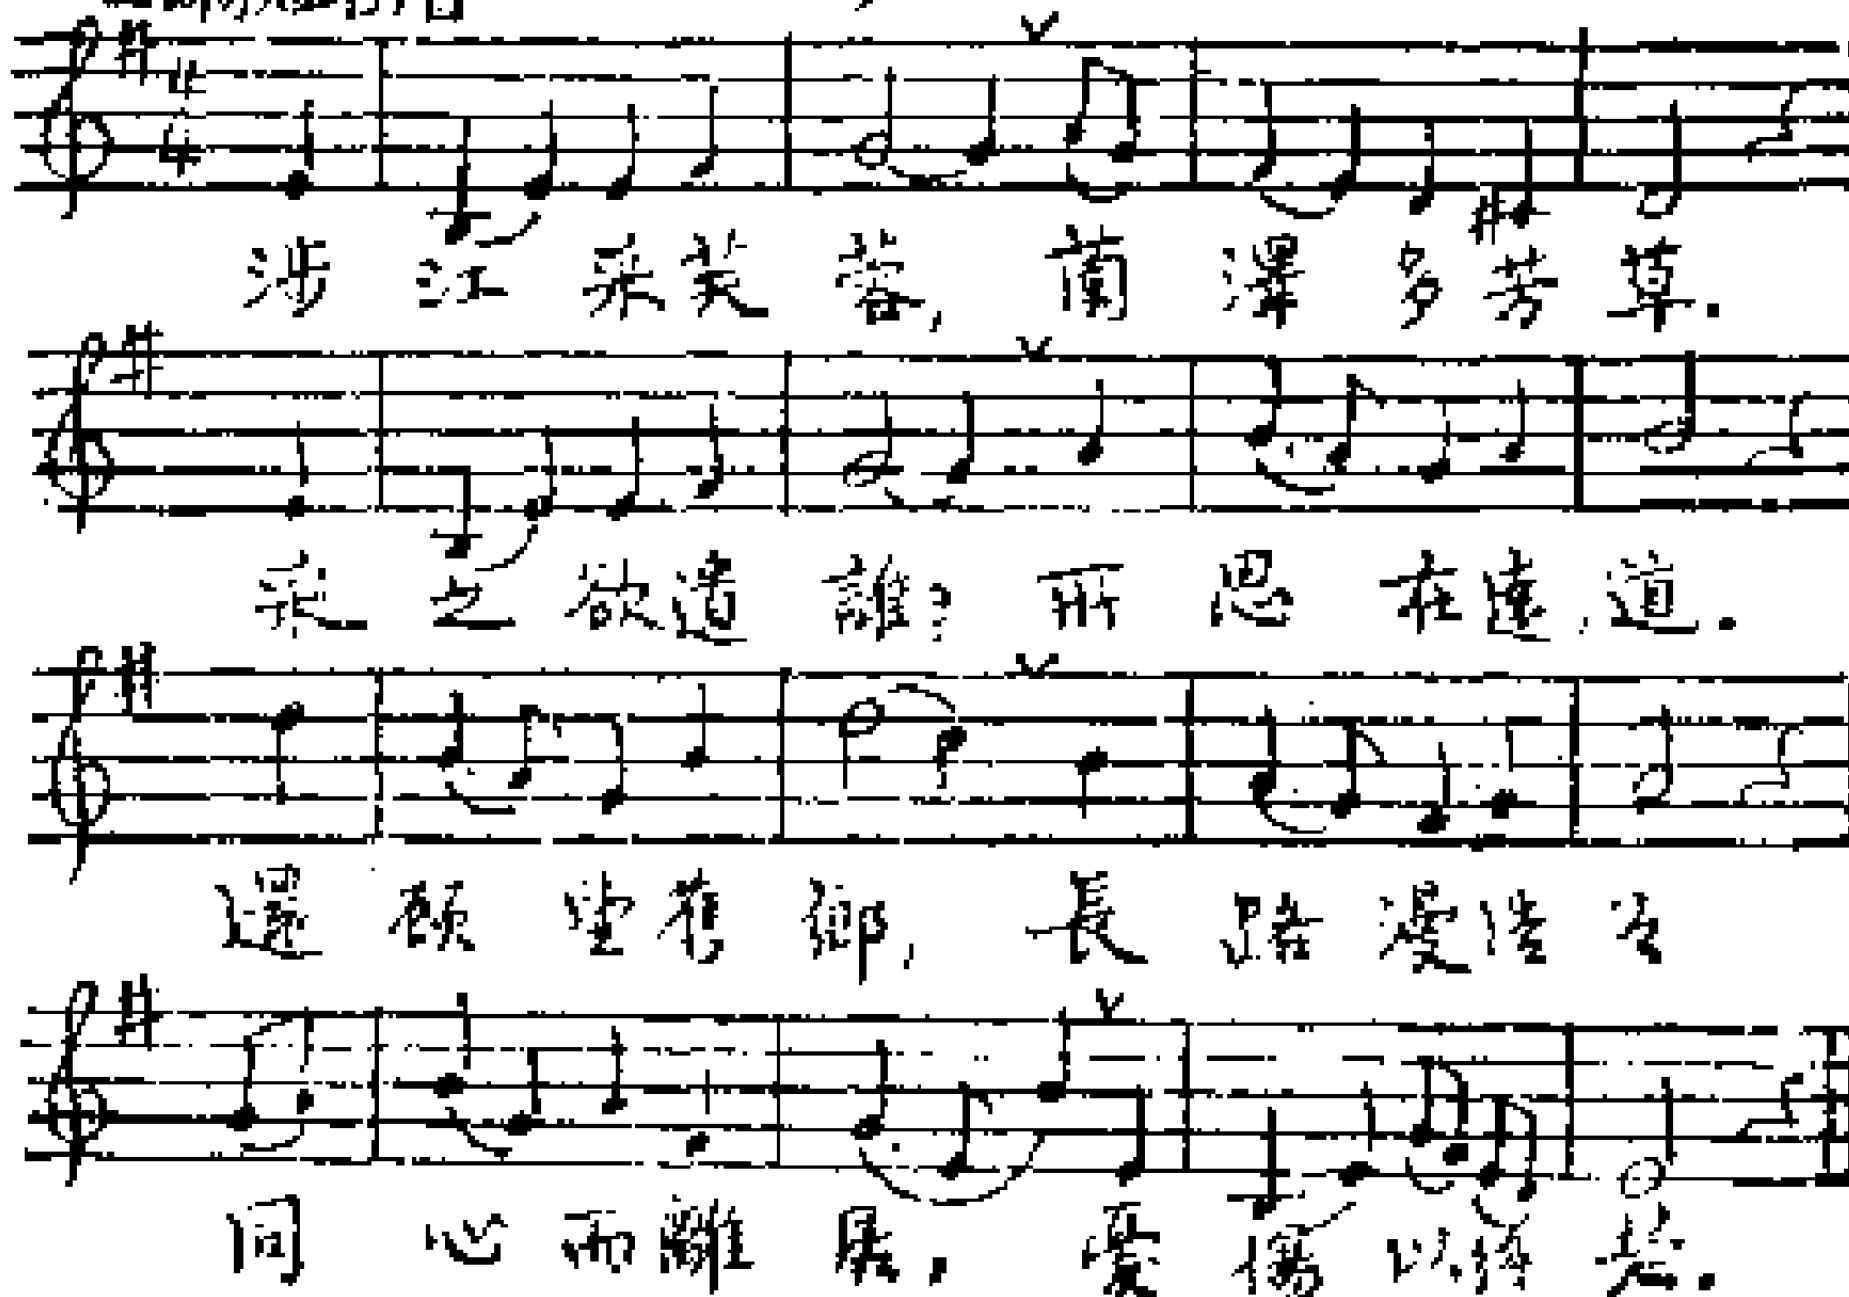 涉江采芙蓉,蘭澤多芳草.
采之欲遺誰?所思在遠道.
還顧望舊鄉,長路漫浩浩
同心而離居,憂傷以終老.